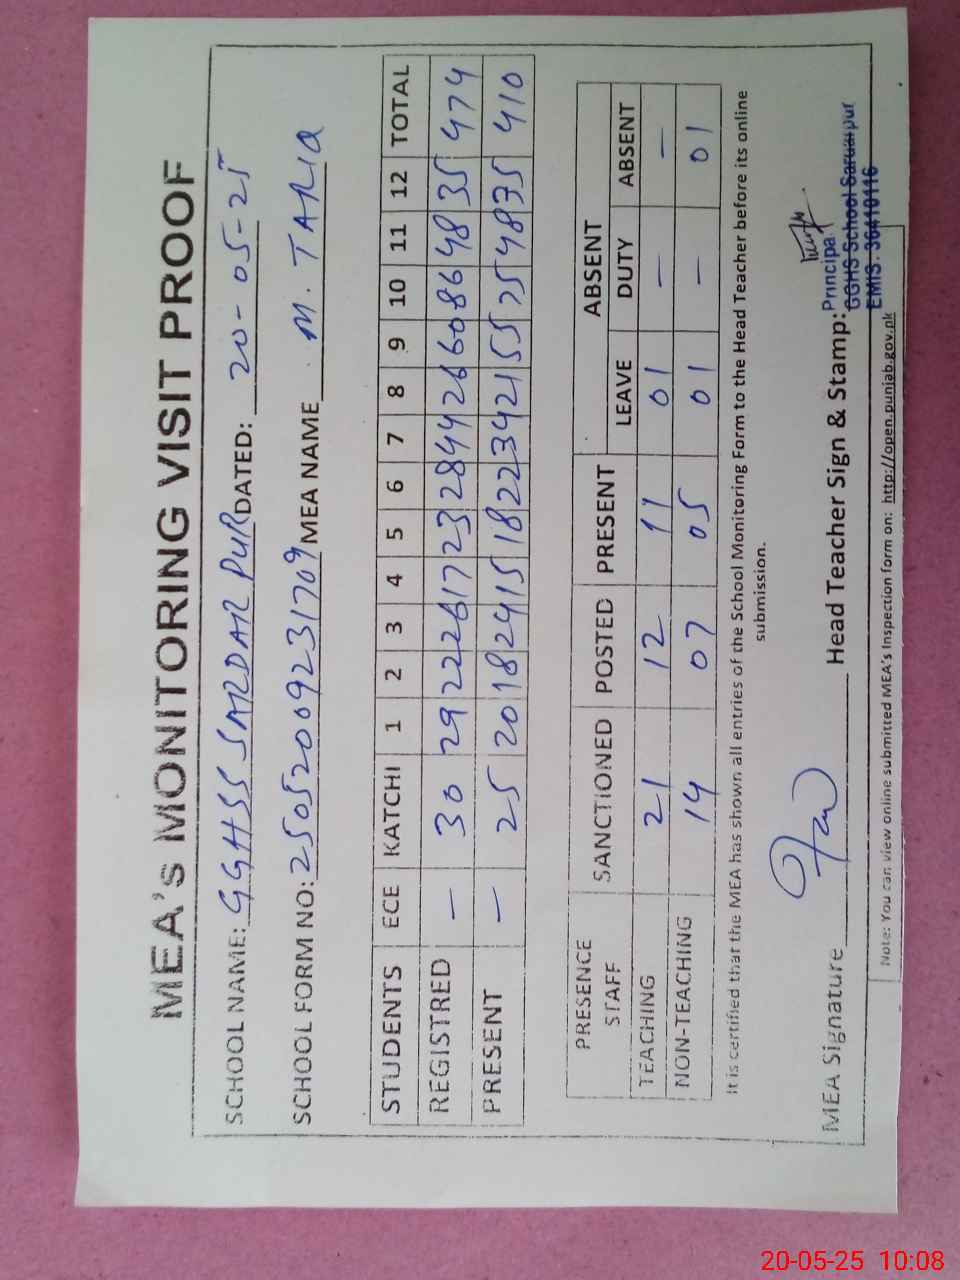 MEA's MONITORING VISIT PROOF
SCHOOL NAME: GGHSS SARDAR PUR DATED: 20-05-25
SCHOOL FORM NO: 25052009231709 MEA NAME . M. TARIQ
STUDENTS ECE KATCHI 1 2 3 4 5 6 7 8 9 10 11 12 TOTAL
REGISTRED — 30 29 22 26 17 23 28 44 26 60 86 48 35 474
PRESENT — 25 20 18 24 15 18 22 34 21 55 75 48 35 410
PRESENCE STAFF SANCTIONED POSTED PRESENT ABSENT
LEAVE DUTY ABSENT
TEACHING 21 12 11 01 — —
NON-TEACHING 14 07 05 01 — 01
It is certified that the MEA has shown all entries of the School Monitoring Form to the Head Teacher before its online
submission.
MEA Signature Head Teacher Sign & Stamp:
Principal
GGHS School Sardarpur
EMIS. 36410116
Note: You can view online submitted MEA's Inspection form on: http://open.punjab.gov.pk
20-05-25 10:08